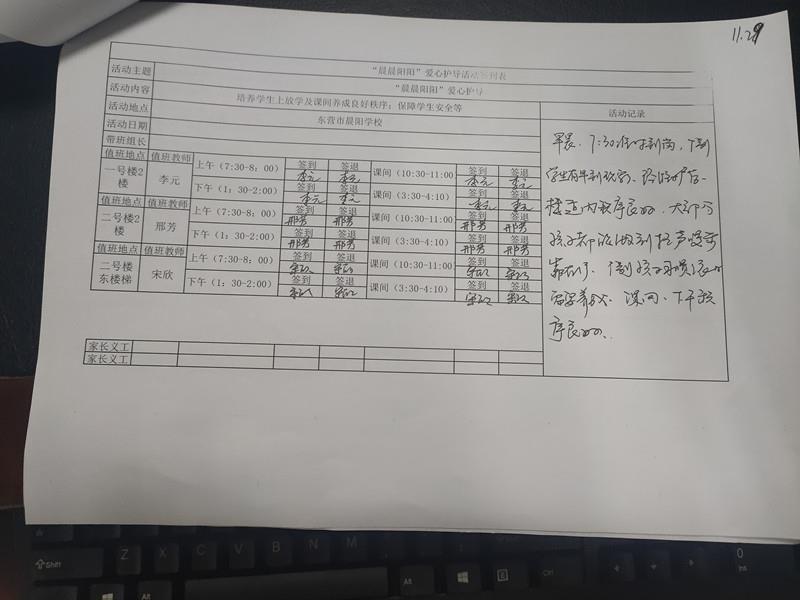 11.29
"晨晨阳阳"爱心护导活动签到表
活动主题 "晨晨阳阳"爱心护导
活动内容 培养学生上放学及课间养成良好秩序；保障学生安全等
活动地点 东营市晨阳学校
活动日期
带班组长
活动记录
值班地点 值班教师 上午（7:30-8：00） 签到 签退 课间（10:30-11:00 签到 签退
一号楼2楼 李元 李元 李元 李元 李元
下午（1：30-2:00） 签到 签退 课间（3:30-4:10） 签到 签退
李元 李元 李元 李元
值班地点 值班教师 上午（7:30-8：00） 签到 签退 课间（10:30-11:00 签到 签退
二号楼2楼 邢芳 邢芳 邢芳 邢芳 邢芳
下午（1：30-2:00） 签到 签退 课间（3:30-4:10） 签到 签退
邢芳 邢芳 邢芳 邢芳
值班地点 值班教师 上午（7:30-8：00） 签到 签退 课间（10:30-11:00 签到 签退
二号楼东楼梯 宋欣 宋欣 宋欣 宋欣 宋欣
下午（1：30-2:00） 签到 签退 课间（3:30-4:10） 签到 签退
宋欣 宋欣 宋欣 宋欣
早晨，7:30准时到岗，
学生有
楼道内秩序良好，大部分
孩子都能做到
靠右行，
课间、下午秩
序良好。
家长义工
家长义工
Shift
Z X C V B N M
Alt
Alt
Ctrl
0
Ins